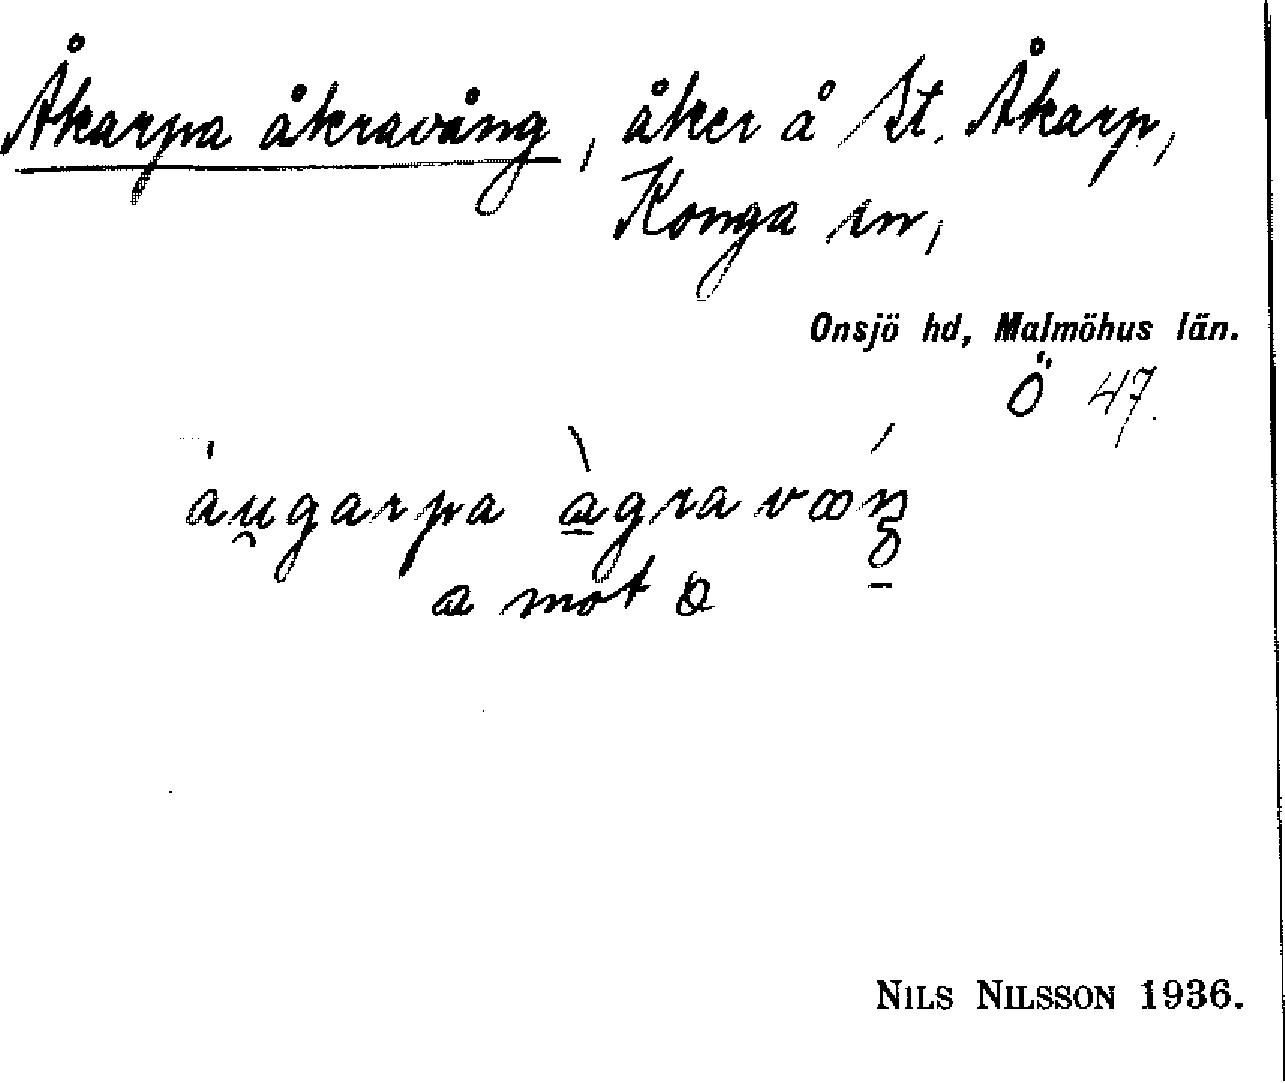 Åkarpa åkravång, åker å St. Åkarp,
Konga sn,
Onsjö hd, Malmöhus län.
Ö 47.
a mot
NILS NILSSON 1936.